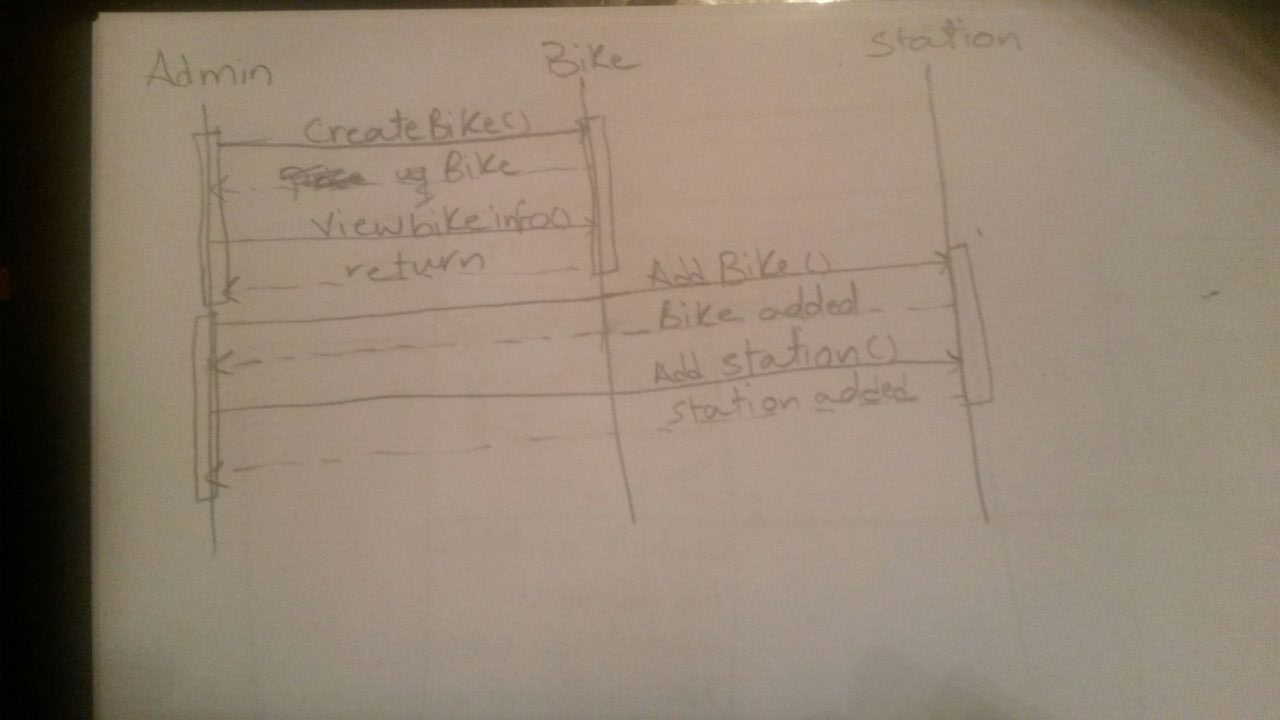 Admin
Bike
Station
CreateBike()
Bike
Viewbikeinfo()
return
Add Bike()
Bike added
Add station()
station added